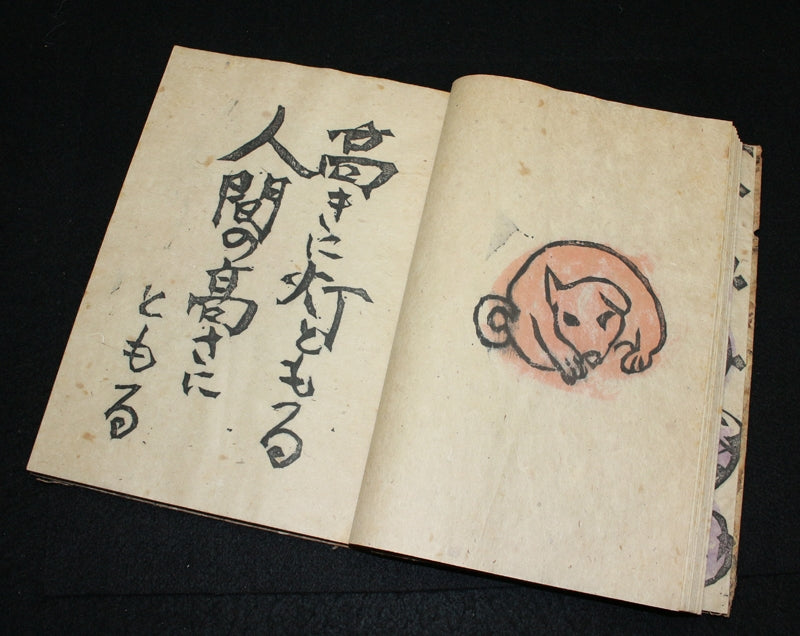 高きに灯ともる
人間の高さに
ともる